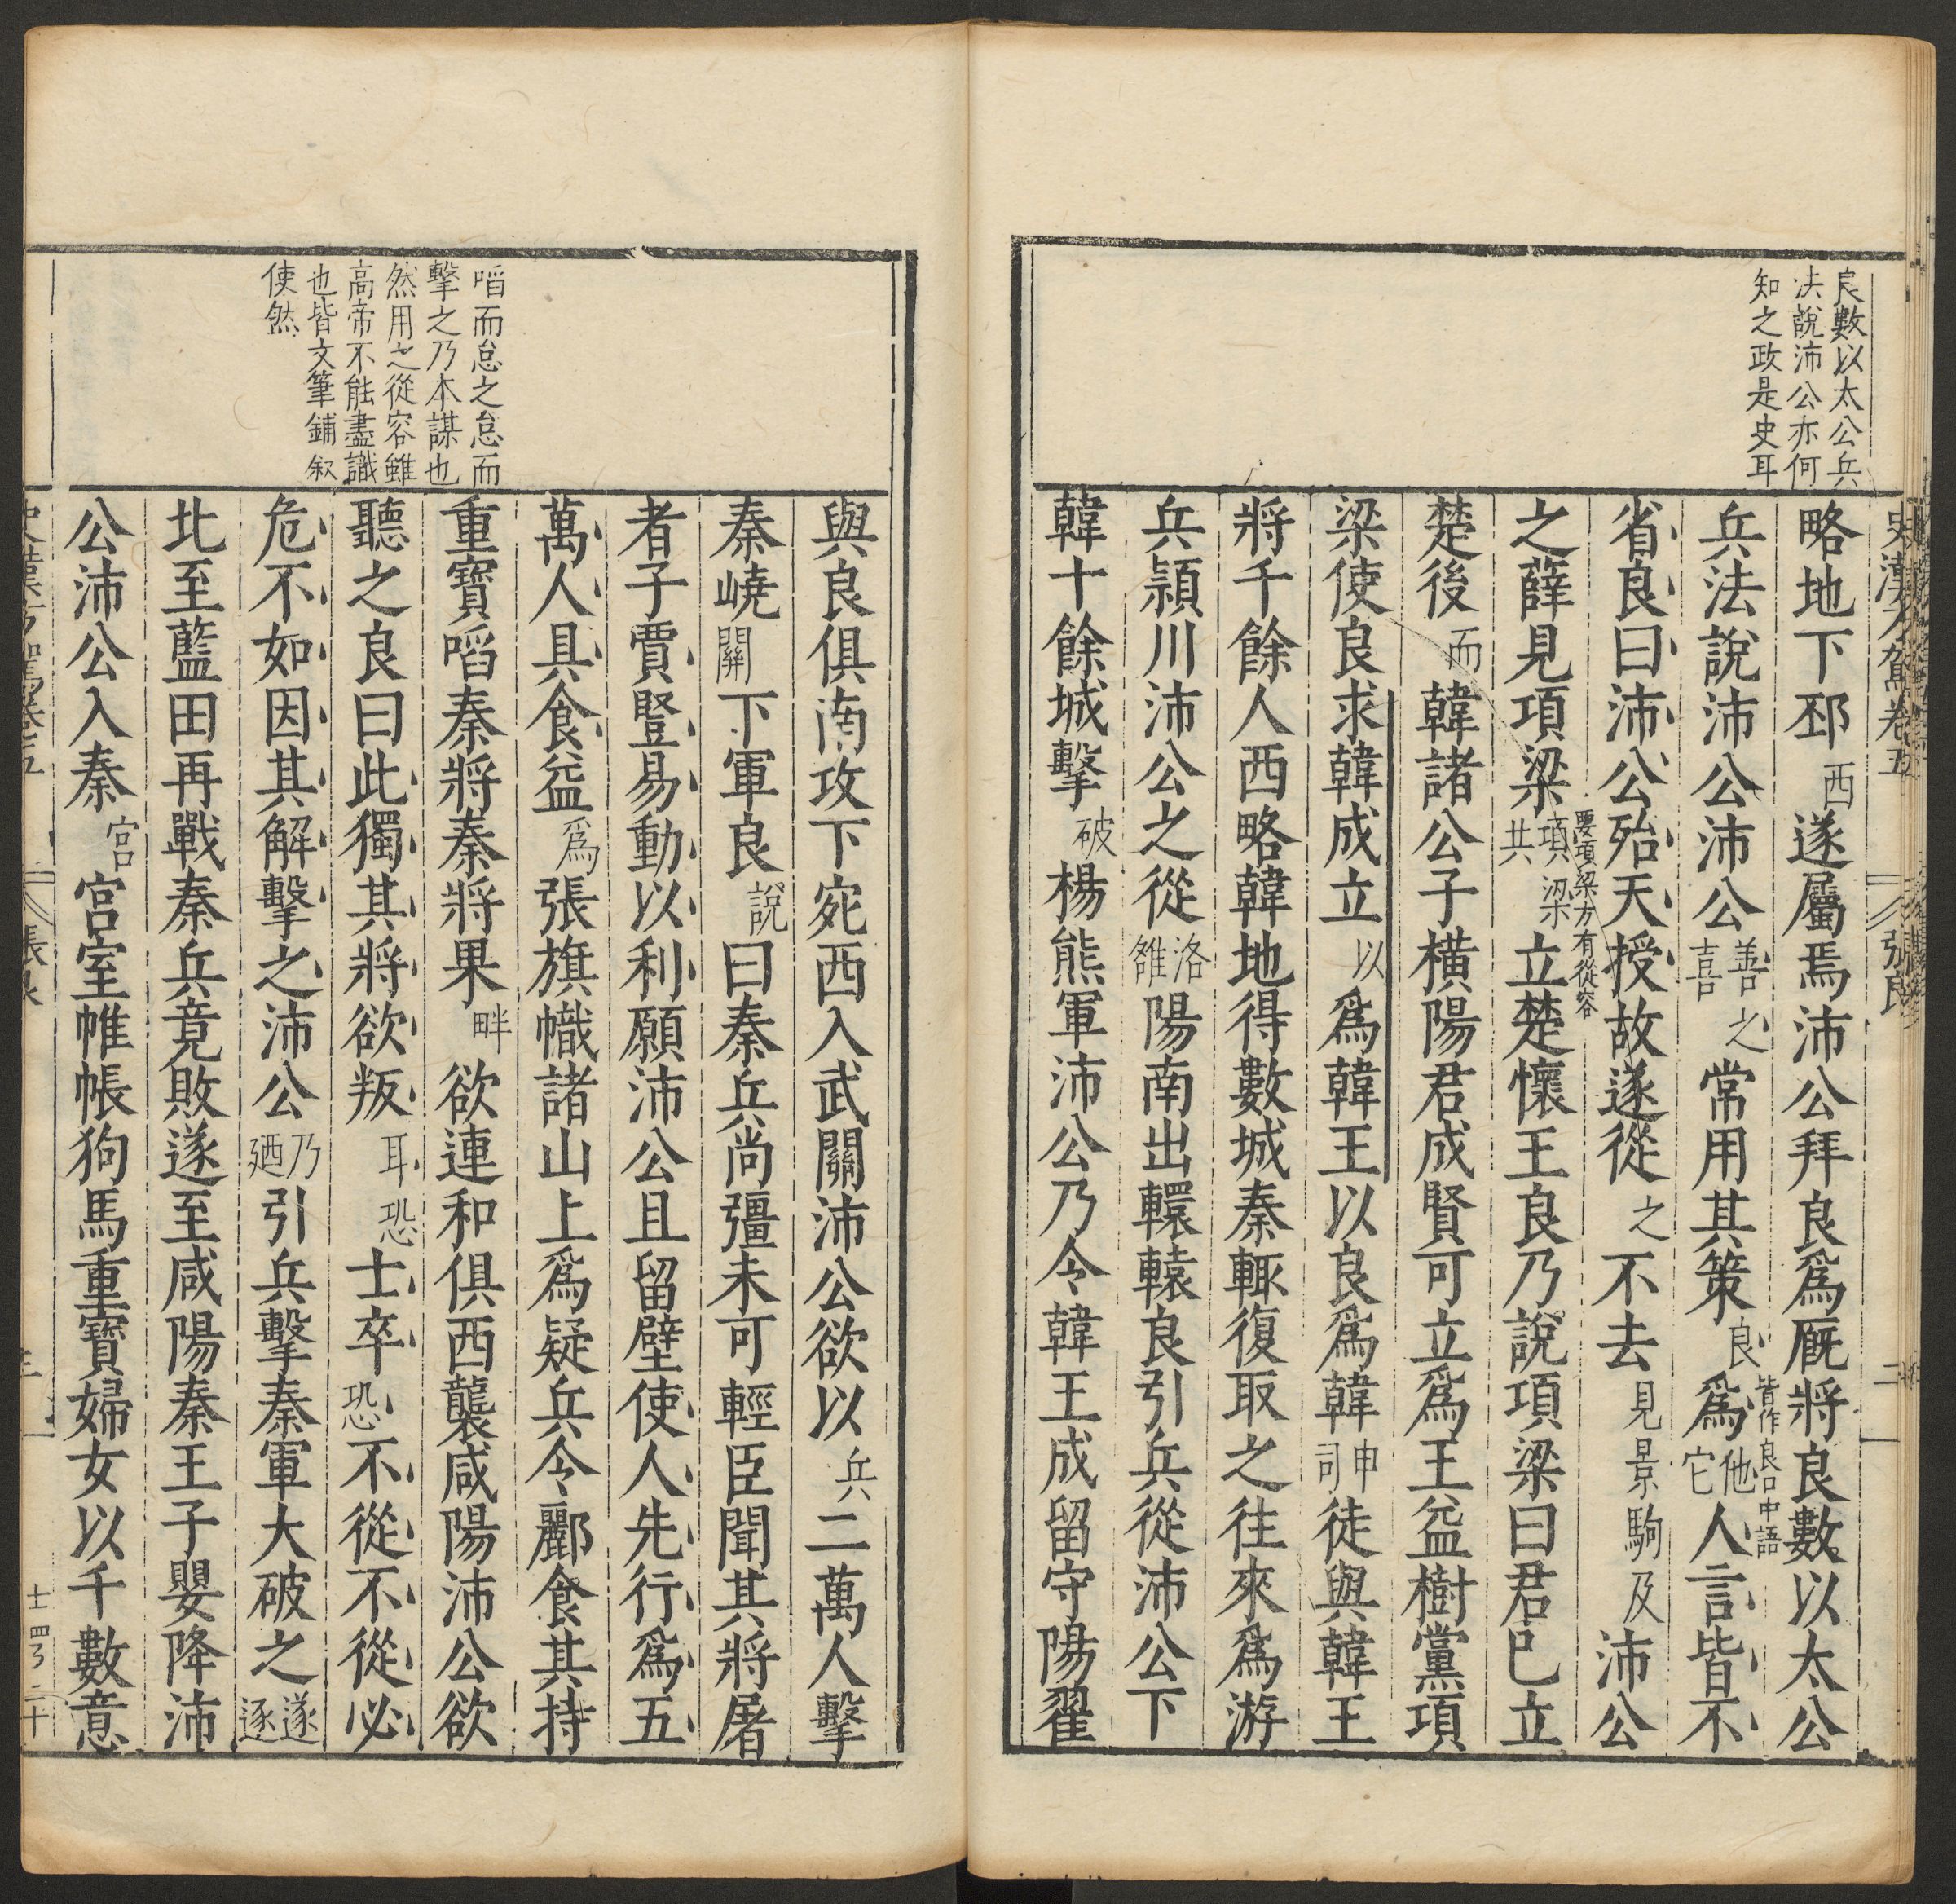 史漢方駕卷五
張良
二
良數以太公兵
法説沛公亦何
知之政是史耳
略地下邳西遂屬焉沛公拜良爲厩將良數以太公
兵法說沛公沛公善喜之常用其策良爲他它人言皆不
皆作良口中語
省良曰沛公殆天授故遂從之不去見景駒及沛公
之薛見項梁項梁共立楚懷王良乃說項梁曰君已立
要項梁方有從容
楚後而韓諸公子橫陽君成賢可立爲王益樹黨項
梁使良求韓成立以爲韓王以良爲韓申司徒與韓王
將千餘人西略韓地得數城秦輒復取之往來爲游
兵潁川沛公之從洛雒陽南出轘轅良引兵從沛公下
韓十餘城擊破楊熊軍沛公乃令韓王成留守陽翟
啗而怠之怠而
擊之乃本謀也
然用之從容雖
高帝不能盡識
也皆文筆鋪叙
使然
與良俱南攻下宛西入武關沛公欲以兵二萬人擊
秦嶢關下軍良說曰秦兵尚彊未可輕臣聞其將屠
者子賈豎易動以利願沛公且留壁使人先行爲五
萬人具食益爲張旗幟諸山上爲疑兵令酈食其持
重寶啗秦將秦將果畔欲連和俱西襲咸陽沛公欲
聽之良曰此獨其將欲叛耳恐士卒恐不從不從必
危不如因其解擊之沛公乃廼引兵擊秦軍大破之遂逐
北至藍田再戰秦兵竟敗遂至咸陽秦王子嬰降沛
公沛公入秦宮宮室帷帳狗馬重寶婦女以千數意